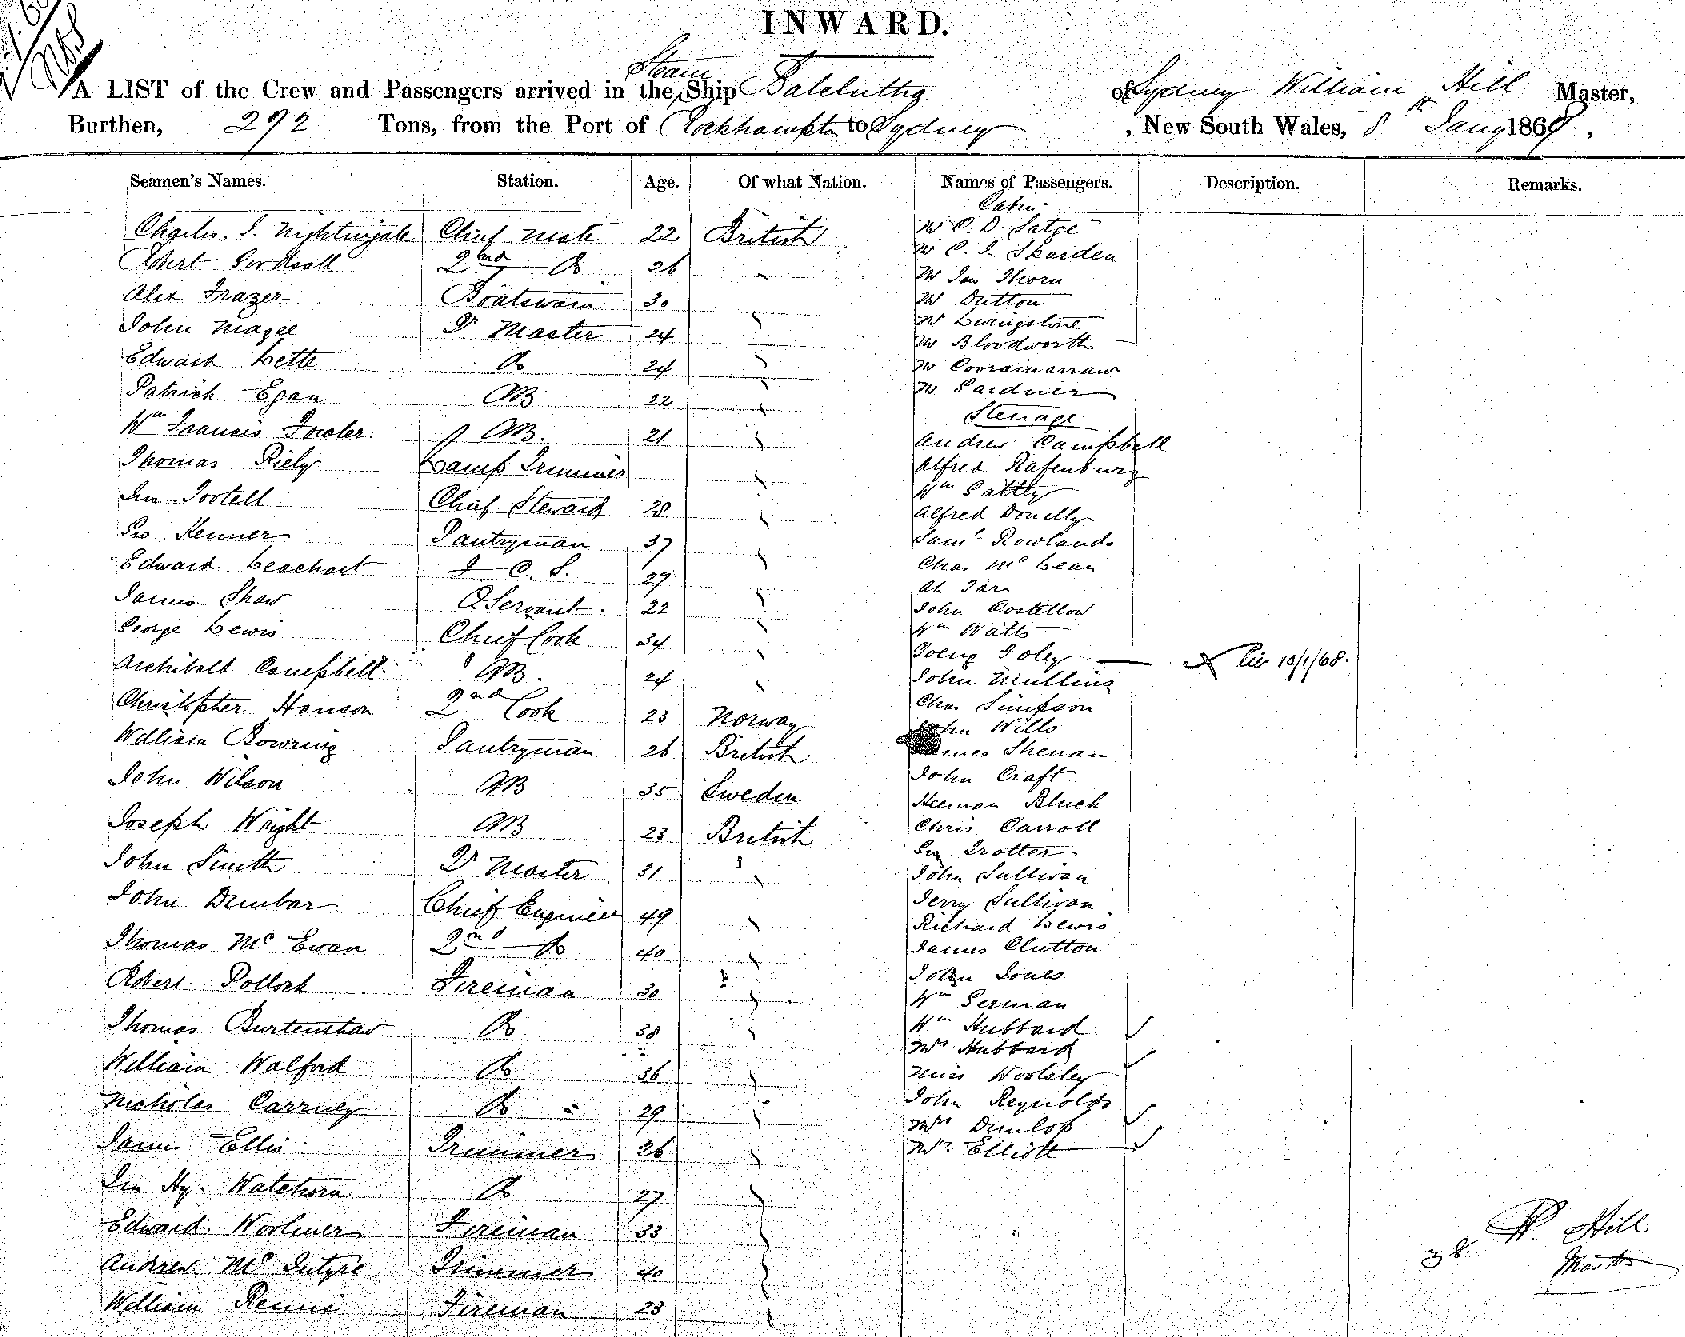 INWARD.
A LIST of the Crew and Passengers arrived in the Steam Ship of Sydney William Hill Master,
Burthen, 292 Tons, from the Port of to Sydney, New South Wales, 8th Jany 186
Seamen's Names. Station. Age. Of what Nation. Names of Passengers. Description. Remarks.
Cabin
Charles. S. Nightingale Chief Mate 22 British
Robert 2nd Do 26
Alex Frazer Boatswain 30
John Magee Qr Master 24
Edward Lette Do 24
Patrick Egan AB 22
Wm Francis Fowler AB. 21
Thomas Riely Lamp Trimmer
Jno Tootell Chief Steward 28
Geo Kenner Pantryman 37
Edward 29
James Shaw Servant. 22
George Lewis Chief Cook 34
Archibald Campbell AB. 24
Christopher Hanson 2nd Cook 23 Norway
William Bowring Pantryman 26 British
John Wilson AB 35 Sweden
Joseph Wright AB 23 British
John Smith Qr Master 31
John Dunbar Chief Engineer 49
Thomas McEwan 2nd Do 40
Robert Pollock Fireman 30
Thomas Burtenshaw Do 38
William Walford Do 36
Nicholas Do 29
James Ellis Trimmer 26
Jno Hy. Watchorn Do 27
Edward Woolmer Fireman 33
Andrew McIntyre Trimmer 40
William Rennie Fireman 23
Mr
Mr
Mr Jas
Mr Dutton
Mr Livingstone
Mr Bloodworth
Mr
Mr Gardner
Steerage
Andrew Campbell
Alfred
Wm
Alfred Donelly
Saml Rowlands
Chas McLean
John Costellow
Wm Watts
Foley 10/1/68.
John Mullins
Chas Simpson
John Wills
James Shenan
John Craft
Herman
Chris Carroll
Geo Trotter
John Sullivan
Jerry Sullivan
Richard Lewis
James Clutton
John Jones
Wm German
Wm Hubbard
Mrs Hubbard
Miss Woolsley
John Reynolds
Mrs Dunlop
Mrs Elliott
38
W. Hill
Master